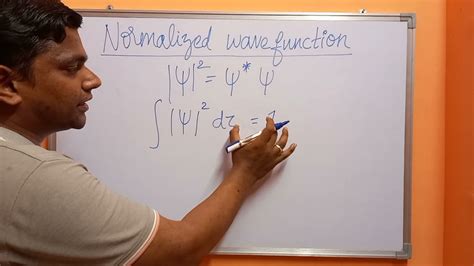 Normalized wavefunction
|Ψ|² = Ψ* Ψ
∫ |Ψ|² dτ = 1